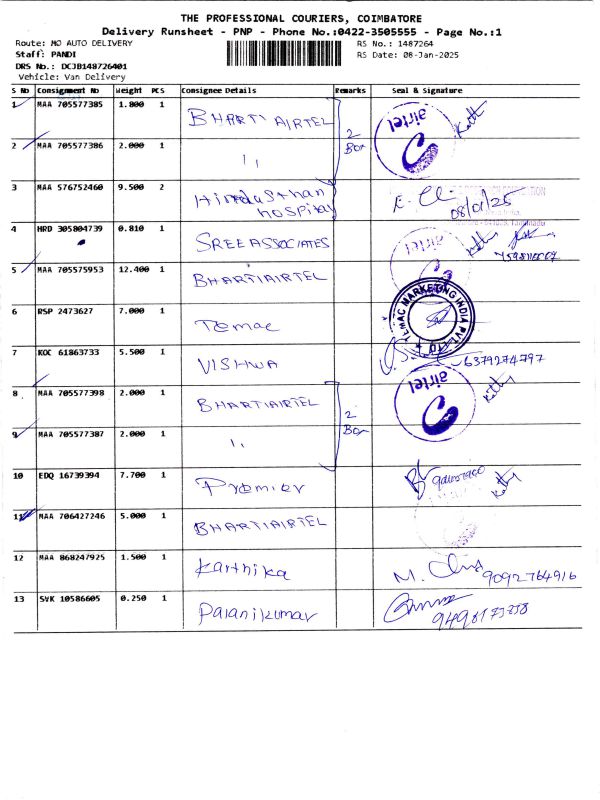 THE PROFESSIONAL COURIERS, COIMBATORE
Delivery Runsheet - PNP - Phone No.:0422-3505555 - Page No.:1
Route: MO AUTO DELIVERY RS No.: 1487264
Staff: PANDI RS Date: 08-Jan-2025
DRS No.: DCJB148726401
Vehicle: Van Delivery
S No Consignment No Weight PCS Consignee Details Remarks Seal & Signature
1 MAA 705577385 1.800 1 BHARTI AIRTEL airtel
2 Box
2 MAA 705577386 2.000 1 ''
3 MAA 576752460 9.500 2 Hindusthan hospital 08/01/25
4 HRD 305804739 0.810 1 SREE ASSOCIATES
5 MAA 705575953 12.400 1 BHARTIAIRTEL airtel
6 RSP 2473627 7.000 1 Temac TEMAC MARKETING INDIA PVT. LTD
7 KOC 61863733 5.500 1 VISHWA 6379274797
8 MAA 705577398 2.000 1 BHARTIAIRTEL airtel
2 Box
9 MAA 705577387 2.000 1 ''
10 EDQ 16739394 7.700 1 Premier
11 MAA 706427246 5.000 1 BHARTIAIRTEL
12 MAA 868247925 1.500 1 Karthika M. 9092764916
13 SVK 10586605 0.250 1 Palanikumar